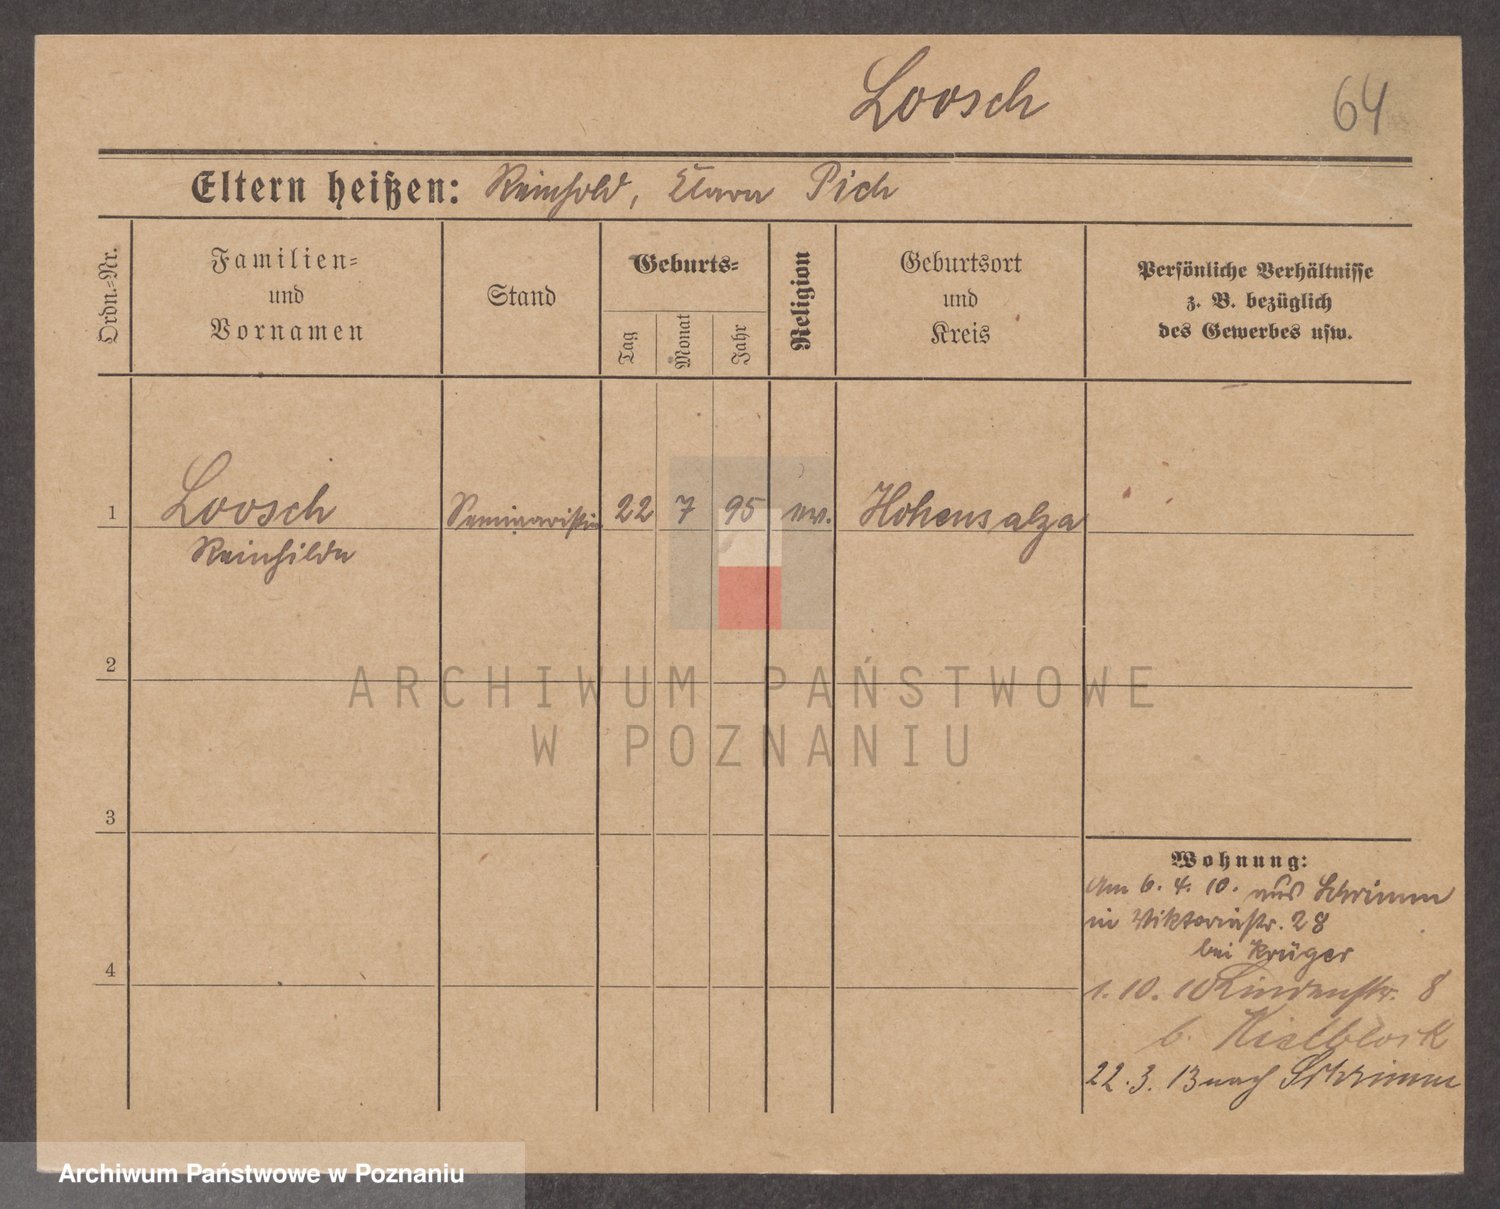 Loosch
64
Eltern heißen: Reinhold, Clara Pich
Ordn.-Nr.
Familien-
und
Vornamen
Stand
Geburts-
Tag
Monat
Jahr
Religion
Geburtsort
und
Kreis
Persönliche Verhältnisse
z. B. bezüglich
des Gewerbes usw.
1 Loosch Seminaristin 22 7 95 ev. Hohensalza
Reinhilde
2
ARCHIWUM PAŃSTWOWE
W POZNANIU
3
Wohnung:
Am 6. 4. 10. aus Schrimm
in Viktoriastr. 28
bei Krüger
4
1. 10. 10 Lindenstr. 8
b. Kielblock
22. 3. 13 nach Schrimm
Archiwum Państwowe w Poznaniu